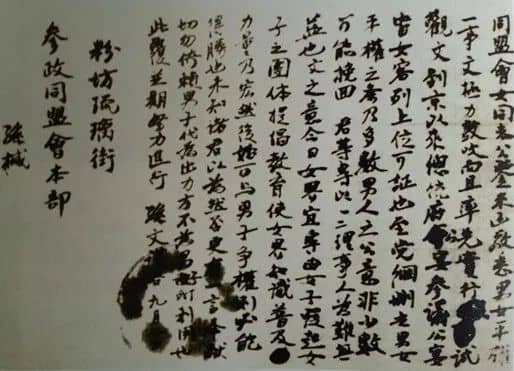 同盟會女同志公鑒來函敬悉男女平權
一事文極力鼓吹而且率先實行試
觀文到京以來總統府公宴參議公宴
皆女客列上位可證也至党綱刪去男女
平權之条乃多數男人之公意非少數
可能挽回 君等專以一二理事人為難無
益也文之意今日女界宜專由女子發起女
子之團体提倡教育使女界知識普及
力量乃宏然後始可与男子爭權則必能
得勝也未知諸君以為然否更有一言奉獻
切勿倚賴男子代為出力方不為所利用也
此覆並期努力進行 孫文 九月
粉坊琉璃街
參政同盟會本部
孫緘